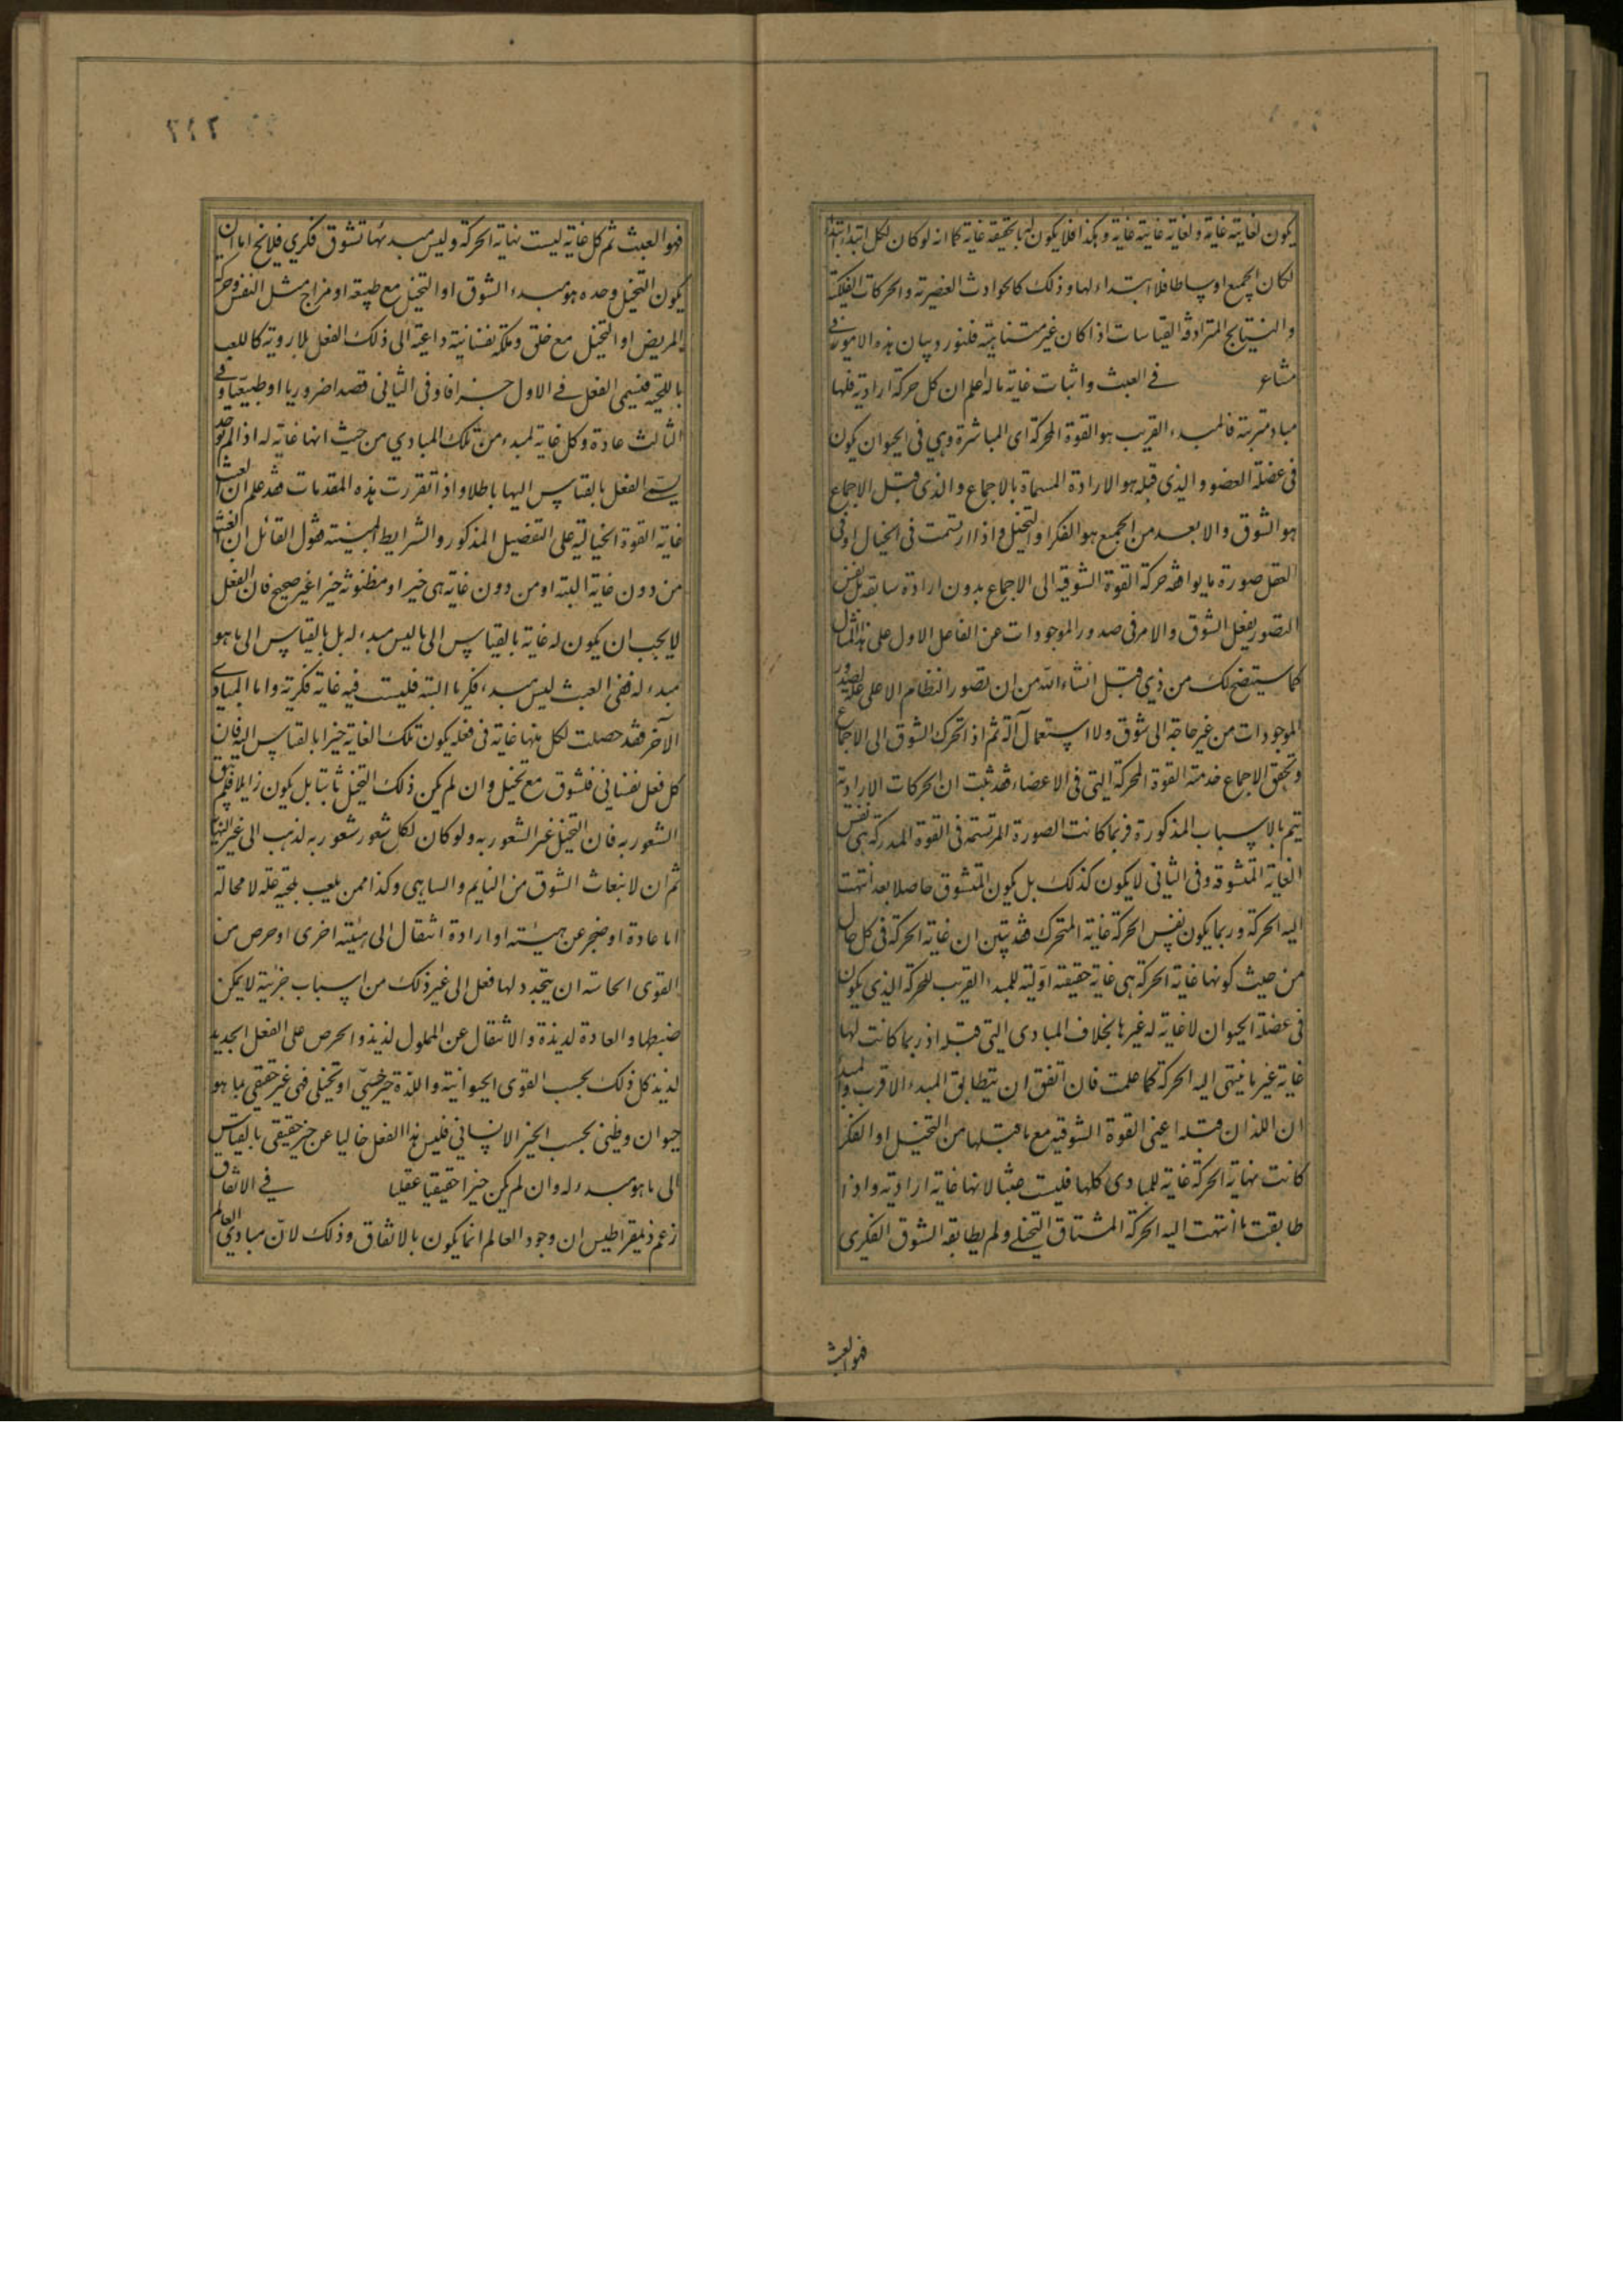 يكون لغايته غاية ولغاية غايته غاية وهكذا فلا يكون له بالحقيقة غاية كما انه لو كان لكل ابتداء ابتداء
لكان الجميع اوساطا فلا ابتداء لها وذلك كالحوادث العنصرية والحركات الفلكية
والنتايج المترادفة القياسات اذا كان غير متناهية فلنورد بيان هذه الامور في
مشاع في العبث واثبات غاية ما له اعلم ان كل حركة ارادية فلها
مباد مترتبة فالمبدء القريب هو القوة المحركة اى المباشرة وهي في الحيوان يكون
فى عضلة العضو والذى قبله هو الارادة المسماة بالاجماع والذى قبل الاجماع
هو الشوق والابعد من الجميع هو الفكر او التخيل واذا ارتسمت فى الخيال او فى
العقل صورة ما يوافقه حركة القوة الشوقية الى الاجماع بدون ارادة سابقة بل نفس
التصور يفعل الشوق والامر فى صدور الموجودات عن الفاعل الاول على هذا المثال
كما سيتضح لك من ذي قبل انشاء الله من ان تصور النظام الاعلى علة لصدور
الموجودات من غير حاجة الى شوق ولا استعمال آلة ثم اذا تحرك الشوق الى الاجماع
وتحقق الاجماع خدمته القوة المحركة التى فى الاعضاء فقد ثبت ان الحركات الارادية
يتم بالاسباب المذكورة فربما كانت الصورة المرتسمة فى القوة المدركة هى نفس
الغاية المتشوقة وفى الثانى لا يكون كذلك بل يكون المتشوق حاصلا بعد انتهت
اليه الحركة وربما يكون نفس الحركة غاية المتحرك فقد تبين ان غاية الحركة فى كل حال
من حيث كونها غاية الحركة هى غاية حقيقة اولية للمبدء القريب للحركة الذى يكون
فى عضلة الحيوان لا غاية له غيرها بخلاف المبادى التى قبله اذ ربما كانت لها
غاية غير ما ينتهى اليه الحركة كما علمت فان اتفق ان يتطابق المبدء الاقرب والمبدء
ان اللذان قبله اعنى القوة الشوقية مع ما قبلها من التخيل او الفكر
كانت نهاية الحركة غاية للمبادى كلها فليست عبثا لانها غاية ارادية واذا
طابقت ما انتهت اليه الحركة المشتاق التخيلى ولم يطابقه الشوق الفكرى
فهو العبث
٢١٢
فهو العبث ثم كل غاية ليست نهاية الحركة وليس مبدئها تشوق فكرى فلا يخ اما ان
يكون التخيل وحده هو مبدء الشوق او التخيل مع طبيعة او مزاج مثل النفس وحركة
المريض او التخيل مع خلق وملكة نفسانية داعية الى ذلك الفعل بلا روية كاللعب
باللحية فيسمى الفعل فى الاول جزافا وفى الثانى قصدا ضروريا او طبيعيا وفى
الثالث عادة وكل غاية لمبدء من تلك المبادي من حيث انها غاية له اذا لم توجد
يسمى الفعل بالقياس اليها باطلا واذا تقررت هذه المقدمات فقد علم ان العبث
غاية القوة الخيالية على التفصيل المذكور والشرايط المبينة فقول القائل ان العبث
من دون غاية البتة او من دون غاية هى خير او مظنونة خيرا غير صحيح فان الفعل
لا يجب ان يكون له غاية بالقياس الى ما ليس مبدء له بل بالقياس الى ما هو
مبدء له ففى العبث ليس مبدء فكريا البتة فليست فيه غاية فكرية واما المبادى
الآخر فقد حصلت لكل منها غاية فى فعله يكون تلك الغاية خيرا بالقياس اليه فان
كل فعل نفسانى فلشوق مع تخيل وان لم يكن ذلك التخيل ثابتا بل يكون زايلا فلم يبق
الشعور به فان التخيل غير الشعور به ولو كان لكل شعور شعور به لذهب الى غير النهاية
ثم ان لانبعاث الشوق من النايم والساهى وكذا ممن يلعب بلحيته علة لا محالة
اما عادة او ضجر عن هيئة او ارادة انتقال الى هيئة اخرى او حرص من
القوى الحاسة ان يتجدد لها فعل الى غير ذلك من اسباب جزئية لا يمكن
ضبطها والعادة لذيذة والانتقال عن المملول لذيذ والحرص على الفعل الجديد
لذيذ كل ذلك بحسب القوى الحيوانية واللذة خير حسي او تخيلى فهى غير حقيقى بما هو
حيوان وظنى بحسب الخير الانسانى فليس هذا الفعل خاليا عن خير حقيقى بالقياس
الى ما هو مبدء له وان لم يكن خيرا حقيقيا عقليا فى الاتفاق
زعم ذيمقراطيس ان وجود العالم انما يكون بالاتفاق وذلك لان مبادي العالم